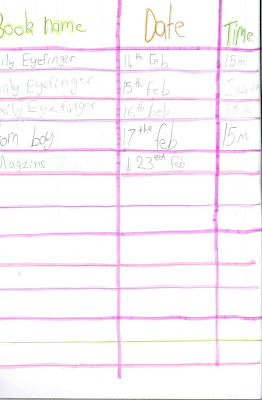 Book name Date Time
ily Eyefinger 14th Feb 15m
mily Eyefinger 15th feb 30m
mily Eyefinger 16th feb 35m
om boy 17the feb 15m
Magzins ↓ 23eth feb